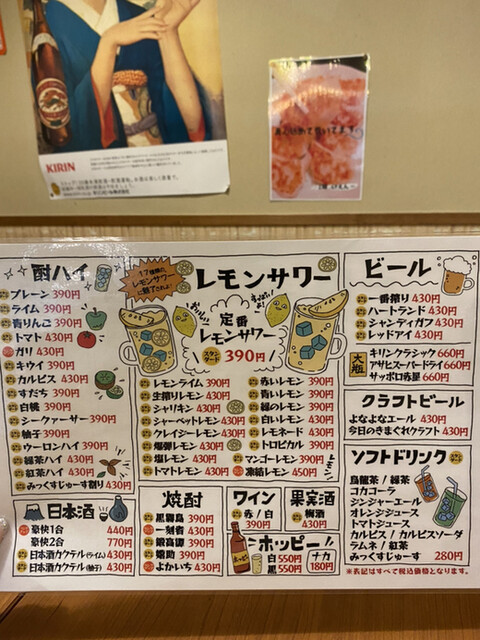 KIRIN
酎ハイ
プレーン 390円
ライム 390円
青りんご 390円
トマト 430円
ガリ 430円
キウイ 390円
カルピス 430円
すだち 390円
白桃 390円
シークァーサー 390円
柚子 390円
ウーロンハイ 390円
緑茶ハイ 430円
紅茶ハイ 430円
みっくすじゅーす割り 430円
17種類の
レモンサワーに魅了されよ!
レモンサワー
定番
レモンサワー
390円
レモンライム 390円
生搾りレモン 430円
シャリキン 430円
シャーベットレモン 430円
クレイジーレモン 430円
爆弾レモン 430円
塩レモン 430円
トマトレモン 430円
赤いレモン 390円
青いレモン 390円
緑のレモン 390円
白いレモン 430円
レモネード 430円
トロピカル 390円
マンゴーレモン 390円
凍結レモン 450円
ビール
一番搾り 430円
ハートランド 430円
シャンディガフ 430円
レッドアイ 430円
大瓶
キリンクラシック 660円
アサヒスーパードライ 660円
サッポロ赤星 660円
クラフトビール
よなよなエール 430円
今日のきまぐれクラフト 430円
ソフトドリンク
烏龍茶 / 緑茶
コカコーラ
ジンジャーエール
オレンジジュース
トマトジュース
カルピス / カルピスソーダ
ラムネ / 紅茶
みっくすじゅーす 280円
※表記はすべて税込価格となります。
日本酒
豪快1合 440円
豪快2合 770円
日本酒カクテル(ライム) 430円
日本酒カクテル(柚子) 430円
焼酎
黒霧島 390円
一刻者 430円
鍛高譚 390円
よかいち 390円
ワイン
赤 / 白
390円
果実酒
梅酒
430円
ホッピー
白 550円
黒 550円
ナカ
180円